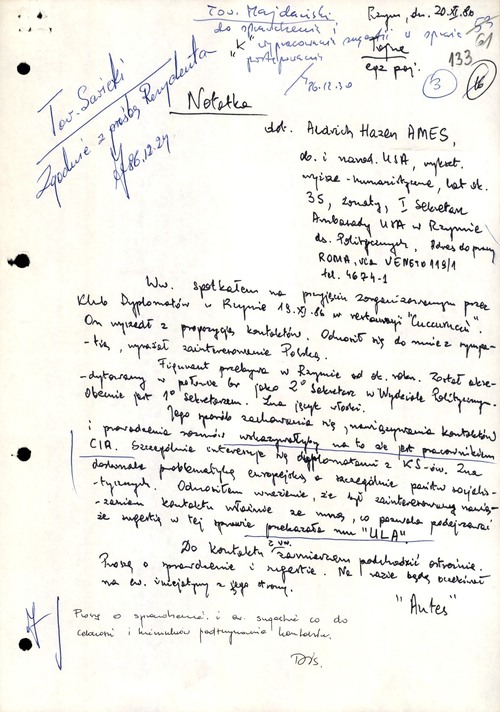 Tow. Majdański
Rzym, dn. 20.XI.86
do sprawdzenia i
"K" wypracowania sugestii w sprawie
postępowania
Tajne
egz. poj.
133
3
16
86.12.30
Tow. Sawicki
Zgodnie z prośbą Rezydenta
86.12.24
Notatka
dot. Aldrich Hazen AMES,
ob. i narod. USA, wykszt.
wyższe - humanistyczne, lat ok.
35, żonaty, I Sekretarz
Ambasady USA w Rzymie
ds. Politycznych, Adres do pracy
ROMA, via VENETO 119/1
tel. 4674-1
Ww. spotkałem na przyjęciu zorganizowanym przez
Klub Dyplomatów w Rzymie 19.XI.86 w restauracji "Cuccurucù".
On wyszedł z propozycją kontaktów. Odnosił się do mnie z sympa-
-tią, wyrażał zainteresowanie Polską.
Figurant przebywa w Rzymie od ok. roku. Został akre-
-dytowany w połowie br jako 2° Sekretarz w Wydziale Politycznym.
Obecnie jest 1° Sekretarzem. Zna język włoski.
Jego sposób zachowania się, nawiązywania kontaktów
i prowadzenia rozmów wskazywałyby na to że jest pracownikiem
CIA. Szczególnie interesuje się dyplomatami z KS-ów. Zna
doskonale problematykę europejską a szczególnie państw socjalis-
-tycznych. Odniosłem wrażenie, że był zainteresowany nawią-
-zaniem kontaktu właśnie ze mną, co pozwala podejrzewać
że sugestię w tej sprawie przekazała mu "ULA".
Do kontaktu z ww. zamierzam podchodzić ostrożnie.
Proszę o sprawdzenie i sugestie. Na razie będę oczekiwał
na ew. inicjatywy z jego strony.
"Antes"
Proszę o sprawdzenie i ew. sugestie co do
celowości i kierunków podtrzymywania kontaktu.